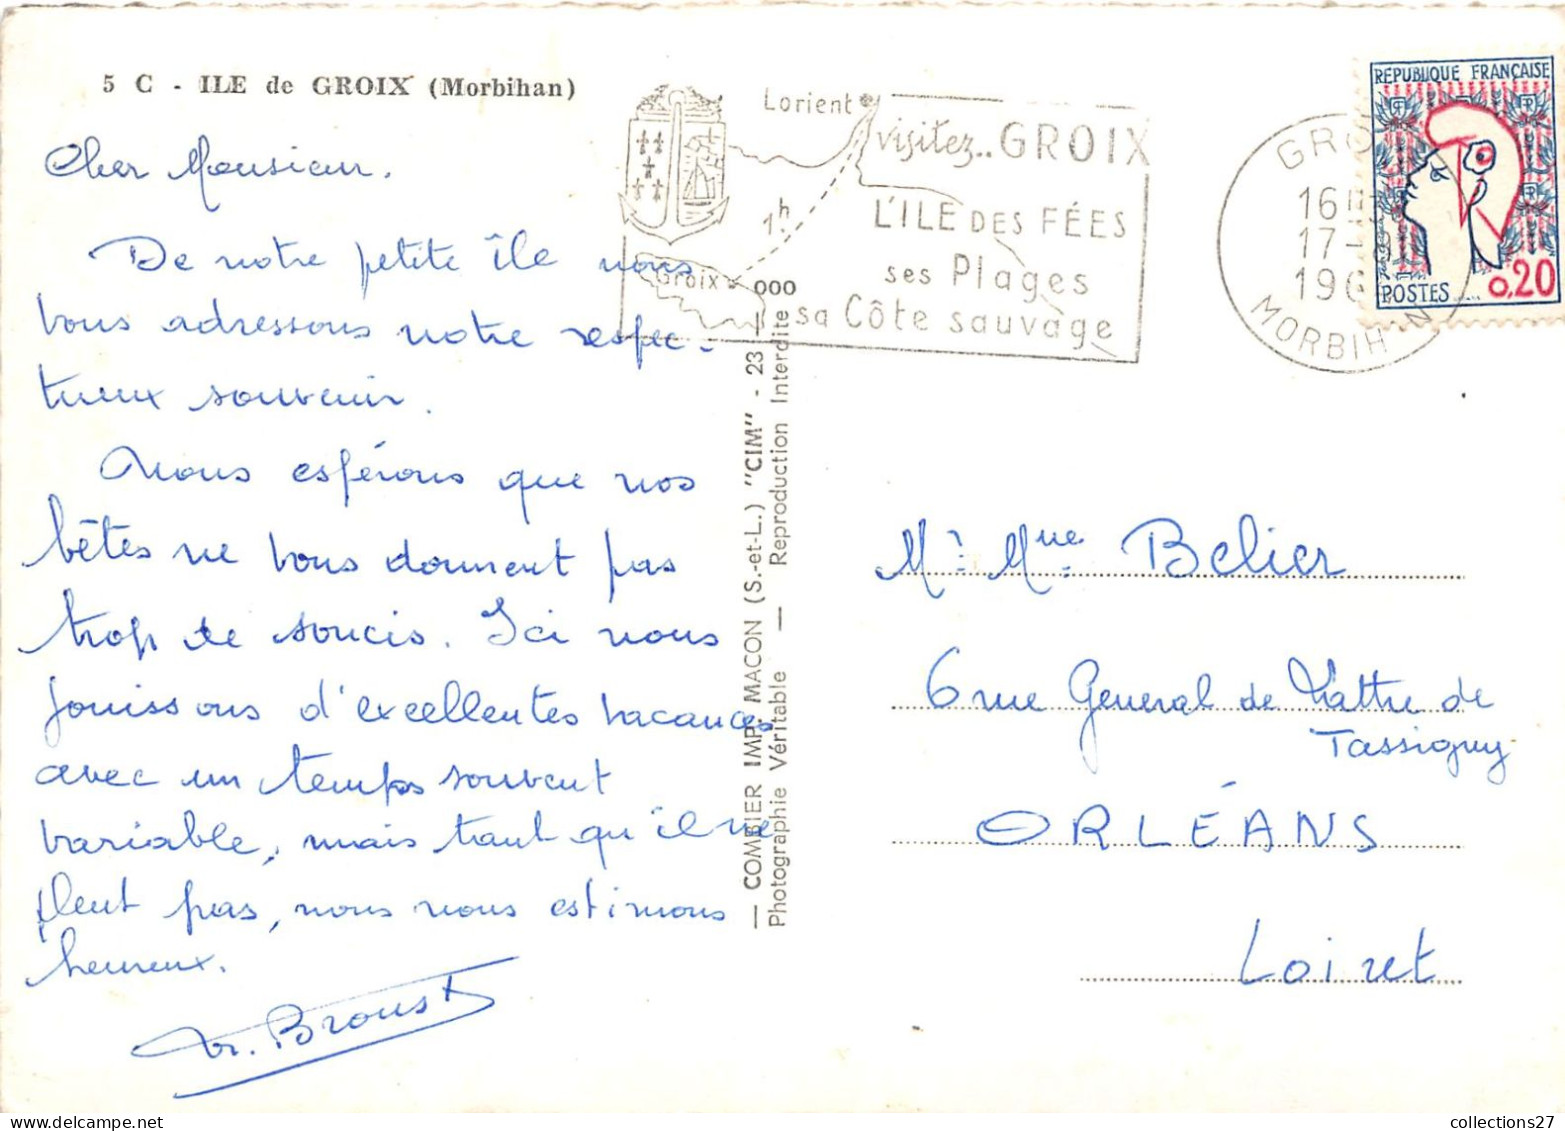 5 C - ILE de GROIX (Morbihan)
Cher Monsieur.
De notre petite île nous
vous adressons notre respec-
tueux souvenir.
Nous espérons que nos
bêtes ne vous donnent pas
trop de soucis. Ici nous
jouissons d'excellentes vacances
avec un temps souvent
variable, mais tant qu'il ne
pleut pas, nous nous estimons
heureux.
Broust
Lorient
1h
Groix
visitez.. GROIX
L'ILE DES FÉES
ses Plages
sa Côte sauvage
GRO
16H
17-8
196
MORBIHAN
RÉPUBLIQUE FRANÇAISE
POSTES
0,20
— COMBIER IMP. MACON (S.-et-L.) "CIM" - 23 — 000
Photographie Véritable — Reproduction Interdite
Mr. Mme. Belier
6 rue General de Lattre de
Tassigny
ORLÉANS
Loiret
collections27